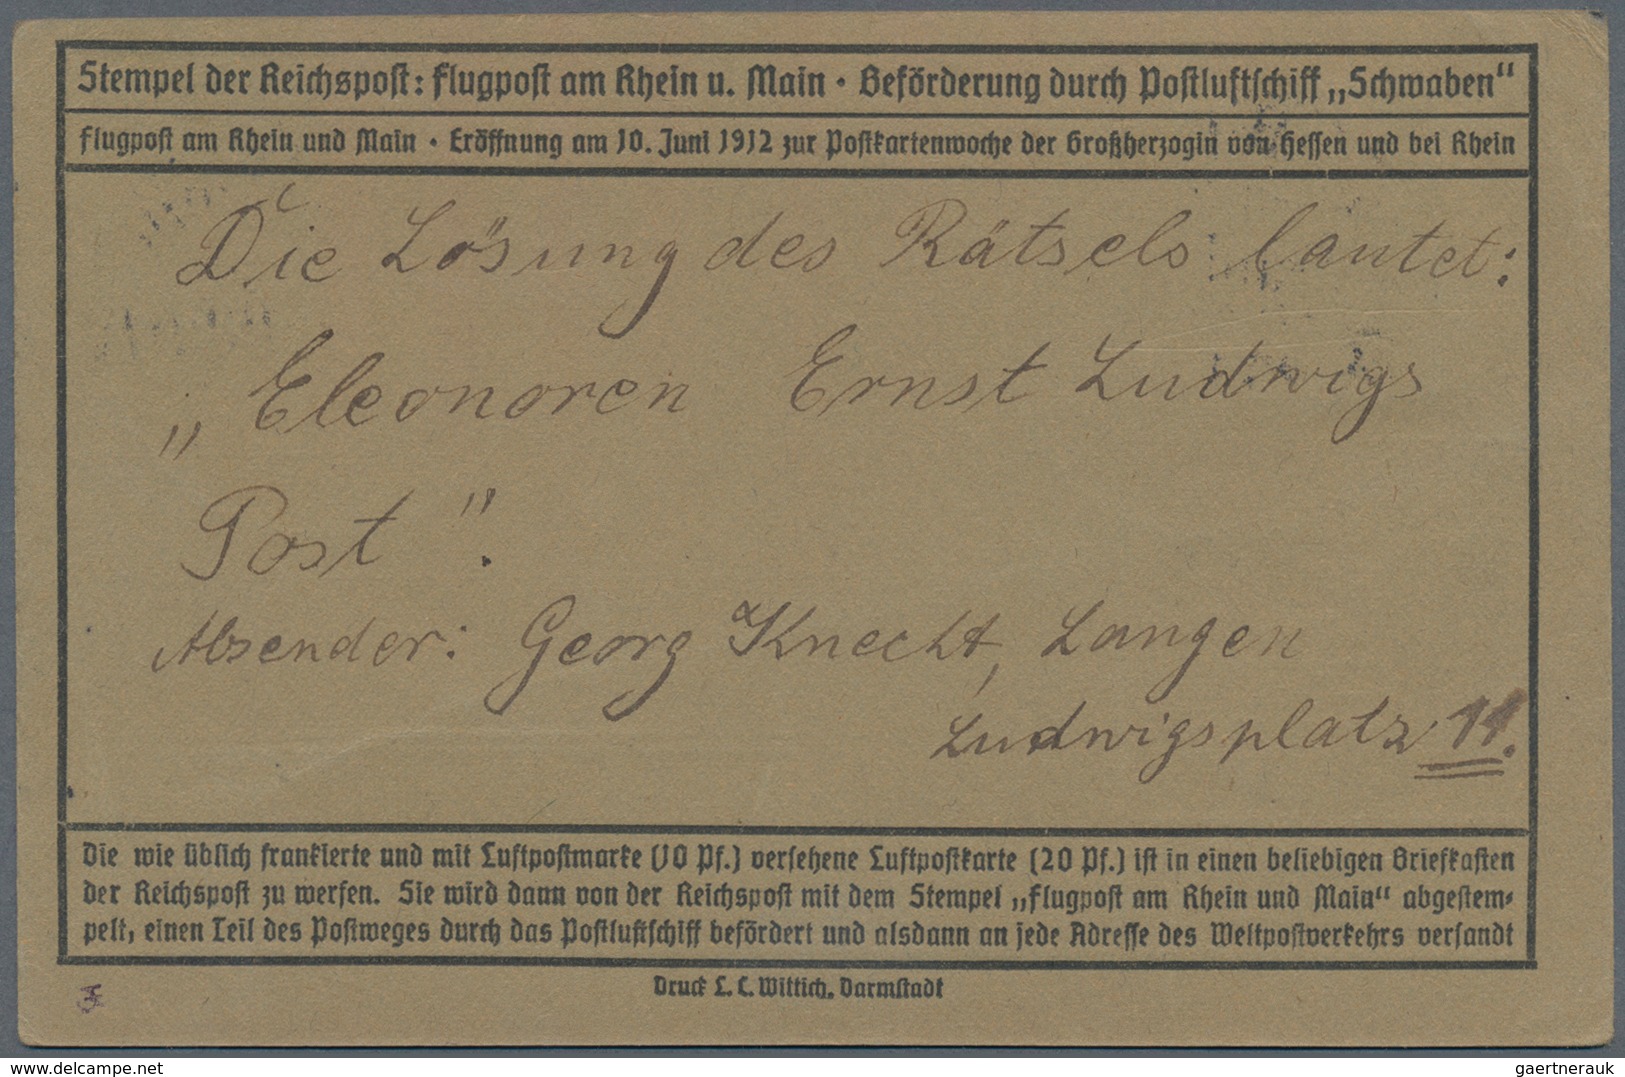 Stempel der Reichspost: Flugpost am Rhein u. Main · Beförderung durch Postluftschiff „Schwaben“
Flugpost am Rhein und Main · Eröffnung am 10. Juni 1912 zur Postkartenwoche der Großherzogin von Hessen und bei Rhein
Die Lösung des Rätsels lautet:
„Eleonoren Ernst Ludwigs
Post".
Absender: Georg Knecht, Langen
Ludwigsplatz 11.
Die wie üblich frankierte und mit Luftpostmarke (10 Pf.) versehene Luftpostkarte (20 Pf.) ist in einen beliebigen Briefkasten
der Reichspost zu werfen. Sie wird dann von der Reichspost mit dem Stempel „Flugpost am Rhein und Main“ abgestem-
pelt, einen Teil des Postweges durch das Postluftschiff befördert und alsdann an jede Adresse des Weltpostverkehrs versandt
Druck L. C. Wittich, Darmstadt
delcampe.net
gaertnerauk